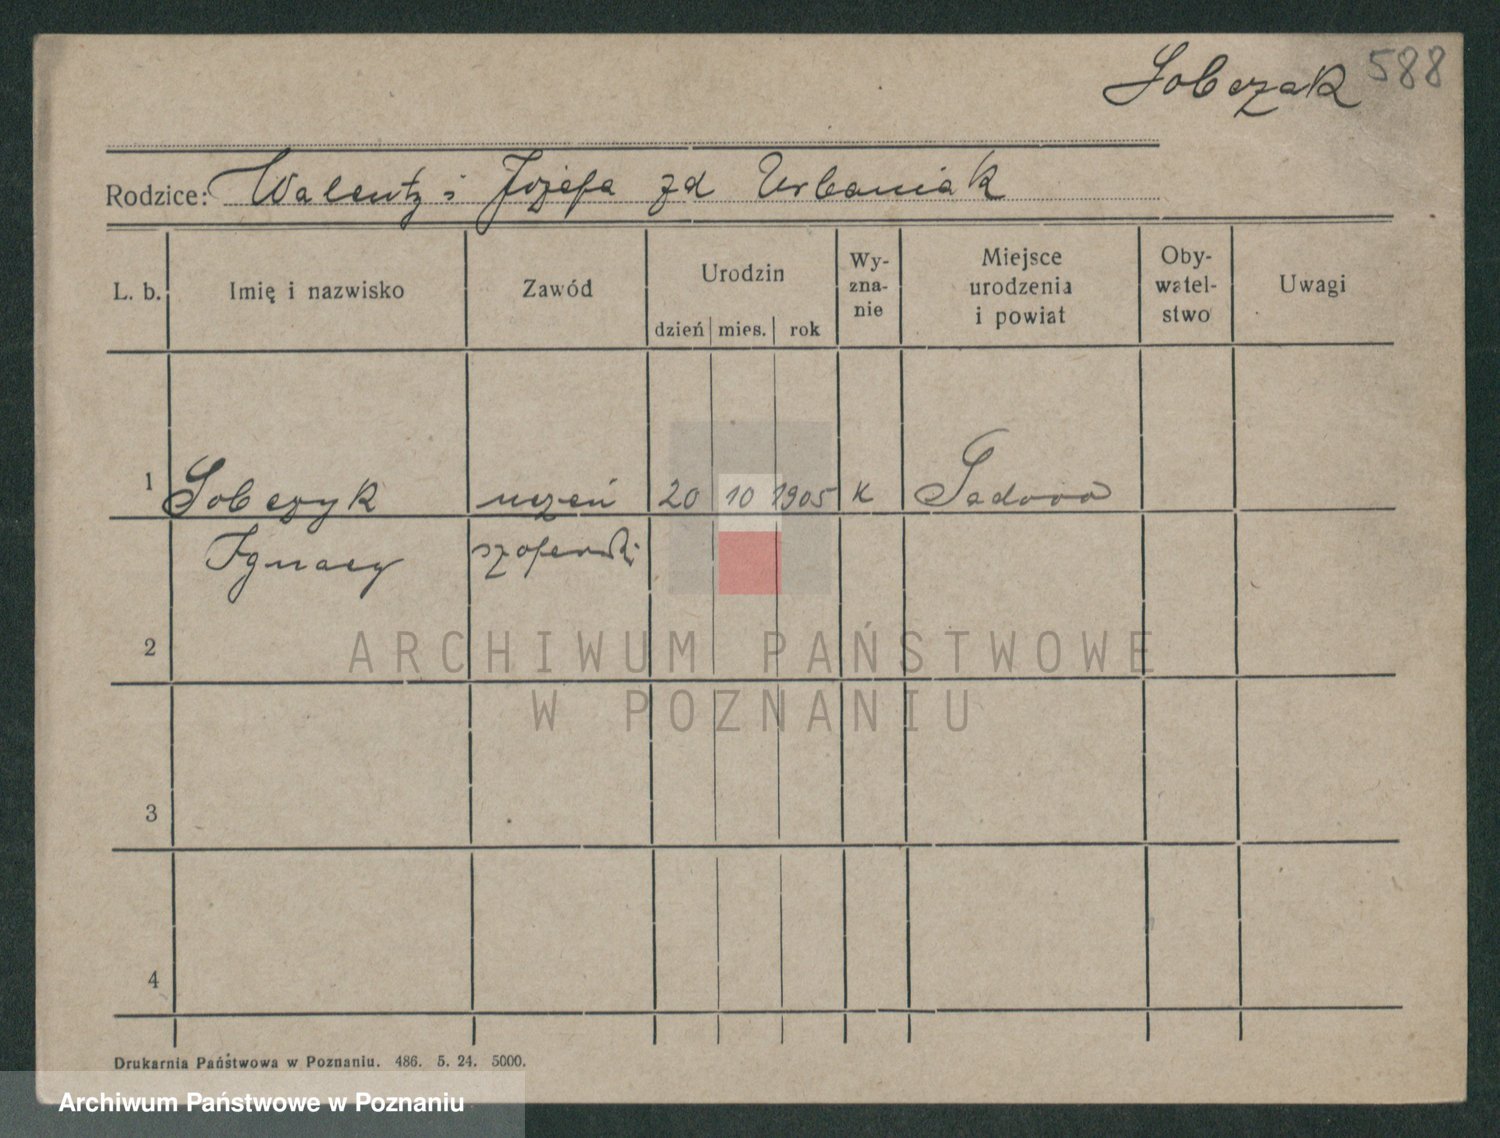 Sobczak 588
Rodzice: Walenty i Józefa zd Urbaniak
L. b. Imię i nazwisko Zawód Urodzin dzień mies. rok Wy-zna-nie Miejsce urodzenia i powiat Oby-watel-stwo Uwagi
1 Sobczyk uczeń 20 10 1905 K
Ignacy szoferski
2
ARCHIWUM PAŃSTWOWE
W POZNANIU
3
4
Drukarnia Państwowa w Poznaniu. 486. 5. 24. 5000.
Archiwum Państwowe w Poznaniu